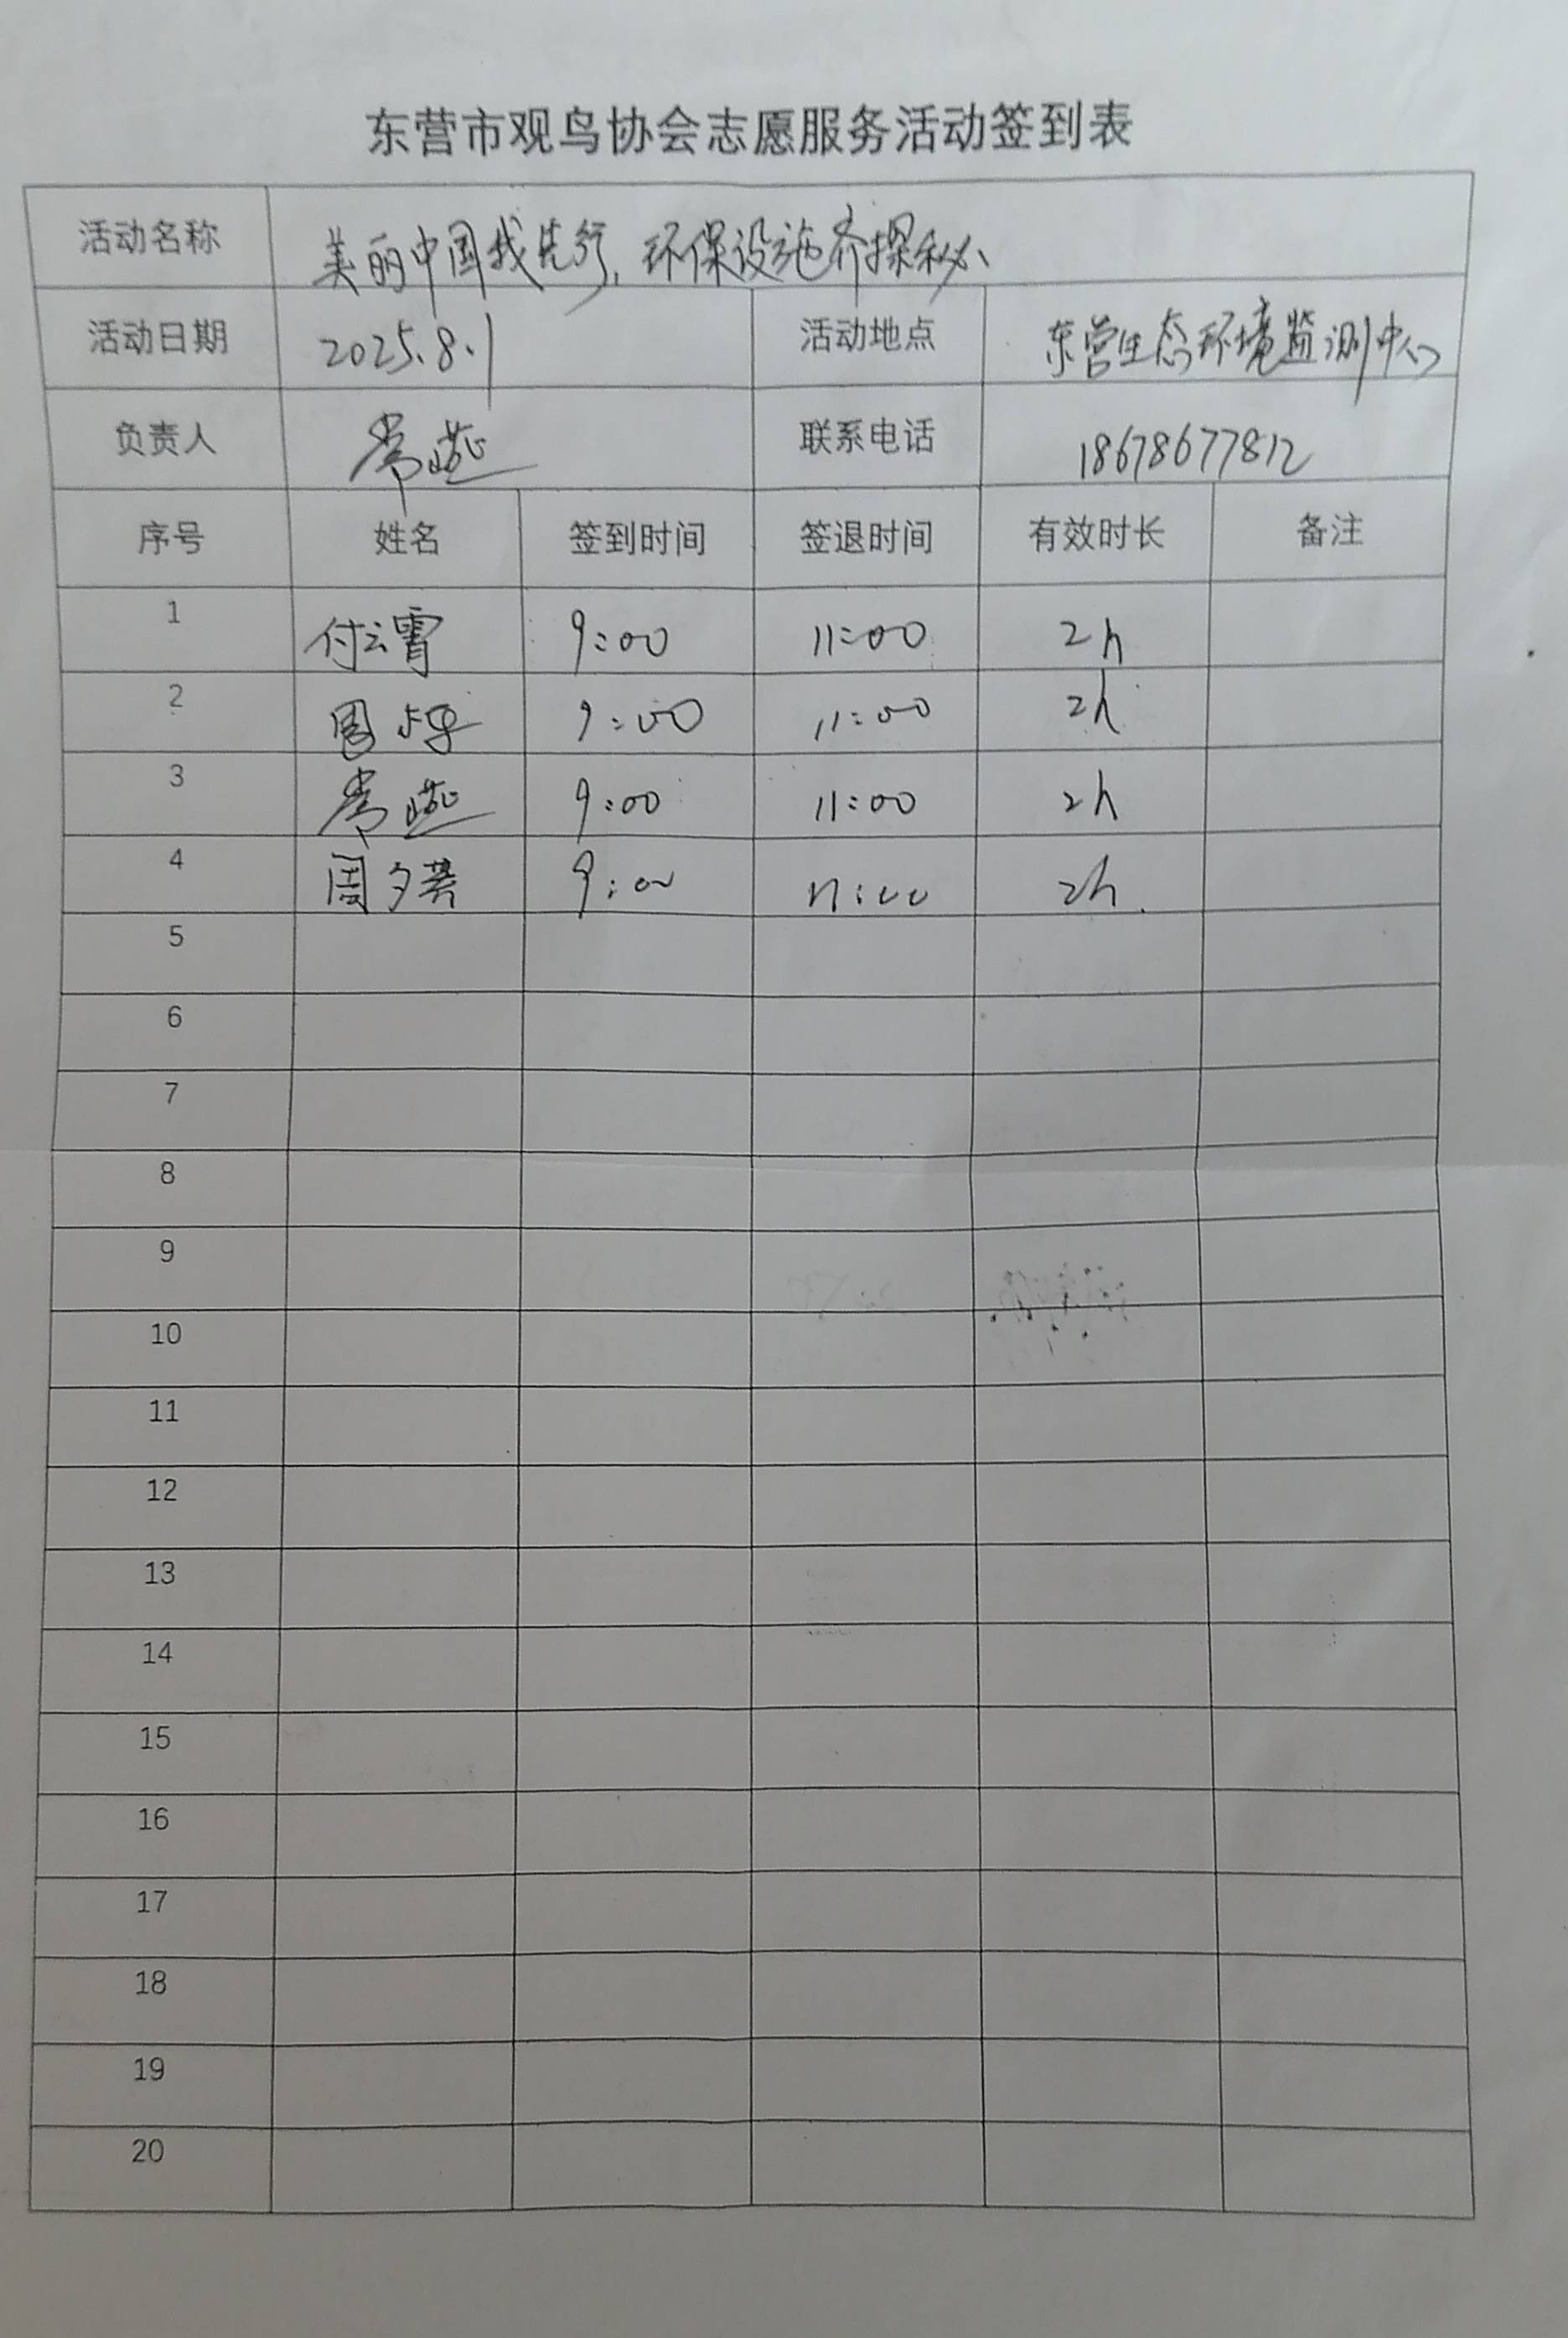 东营市观鸟协会志愿服务活动签到表
活动名称 美丽中国我先行,环保设施齐探秘、
活动日期 2025.8.1 活动地点 东营生态环境监测中心
负责人 常 联系电话 18678677812
序号 姓名 签到时间 签退时间 有效时长 备注
1 付云霄 9:00 11:00 2h
2 周 9:00 11:00 2h
3 常 9:00 11:00 2h
4 周夕 9:00 11:00 2h
5
6
7
8
9
10
11
12
13
14
15
16
17
18
19
20